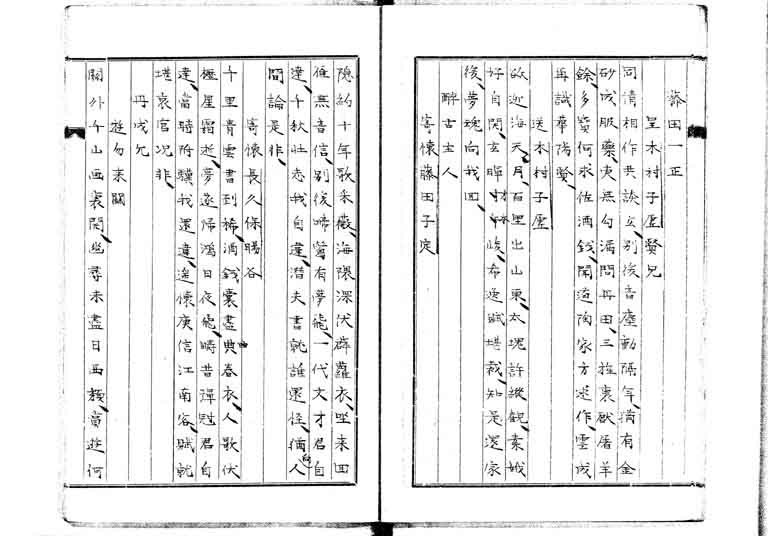 田一正
呈木村子虚賢兄
同情相作共談玄、別後音塵動隔年、猶有金
砂成服藥、更無勾漏問丹田、三旌裏厭屠羊
餘、多貨何求佐酒錢、聞道陶家方述作、雲成
再識華陽賢
送木村子虚
欲迎海天月、百里出山東、太塊許縱觀、素娥
好自閑、玄暉才峻、布逸賦堪裁、知是還家
後、夢魂向我回
醉古主人
寄懷藤田子定
隐約十年歌采薇、海隈深伏薜蘿衣、坐来四
座無音信、別後啼鶯有夢飛、一代文才君自
達、千秋壮志我自違、潜夫書就誰還怪、猶向人
間論是非、
寄懷長久保勝谷
千里青雲書到稀、酒錢囊盡典春衣、人歌伏
櫪星霜逝、夢逐帰鴻日夜飛、疇昔彈冠君自
達、當時附驥我還違、遥懷庾信江南客、賦就
堪哀宮况非、
丹成允
遊勿来關
關外千山画裏開、幽尋未盡日西頹、當遊何